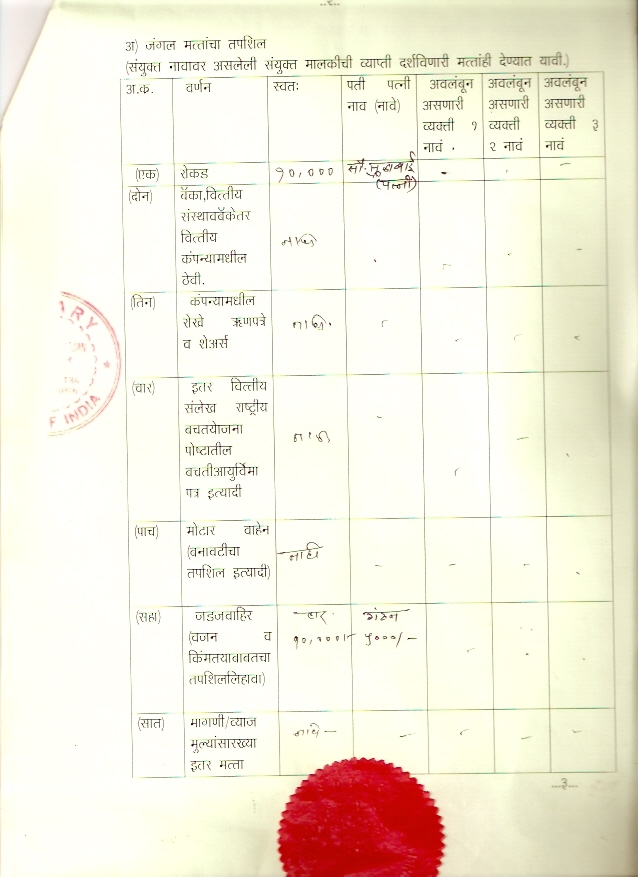 अ) जंगल मत्तांचा तपशिल
(संयुक्त नावावर असलेली संयुक्त मालकीची व्याप्ती दर्शविणारी मत्तांही देण्यात यावी.)
अ.क. वर्णन स्वतः पती पत्नी नाव (नावे) अवलंबून असणारी व्यक्ती १ नावं . अवलंबून असणारी व्यक्ती २ नावं अवलंबून असणारी व्यक्ती ३ नावं
(एक) रोकड १०,००० सौ. (पत्नी) - - -
(दोन) बॅका,वित्तीय
संस्थावबॅकेतर
वित्तीय नाही
कंपन्यामधील
ठेवी.
(तिन) कंपन्यामधील
रोखे ऋणपत्रे नाही.
व शेअर्स
(चार) इतर वित्तीय
संलेख राष्ट्रीय
बचतयोजना नाही
पोष्टातील
बचतीआयुर्विमा
पत्र इत्यादी
(पाच) मोटार वाहेन
(वनावटीचा नाही
तपशिल इत्यादी)
(सहा) जडजवाहिर
(वजन व १०,०००/- ५०००/-
किंमतयाबाबतचा
तपशिललिहावा)
(सात) मागणी/व्याज
मुल्यांसारख्या
इतर मत्ता
...३...
ARY
F INDIA